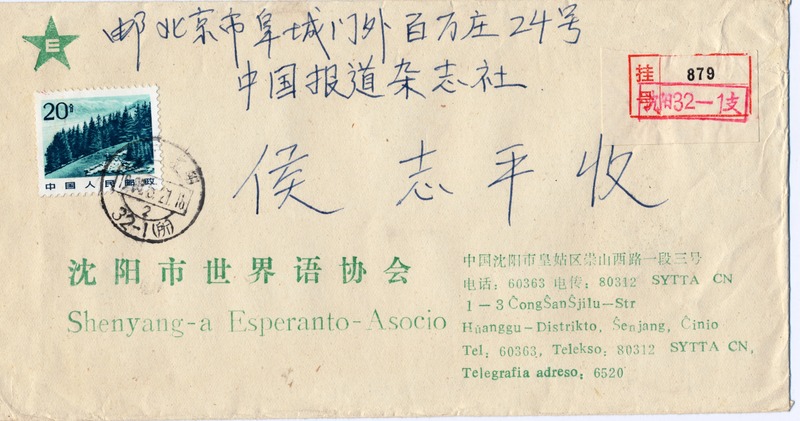 E
邮 北京市阜城门外百万庄24号
中国报道杂志社
挂号
879
沈阳32-1支
20分
中国人民邮政
32-1(所)
侯 志 平 收
沈阳市世界语协会
Shenyang-a Esperanto-Asocio
中国沈阳市皇姑区崇山西路一段三号
电话: 60363 电传: 80312 SYTTA CN
1-3 ĈongŜanŜjilu-Str
Huanggu-Distrikto, Ŝenjang, Ĉinio
Tel: 60363, Telekso: 80312 SYTTA CN,
Telegrafia adreso: 6520